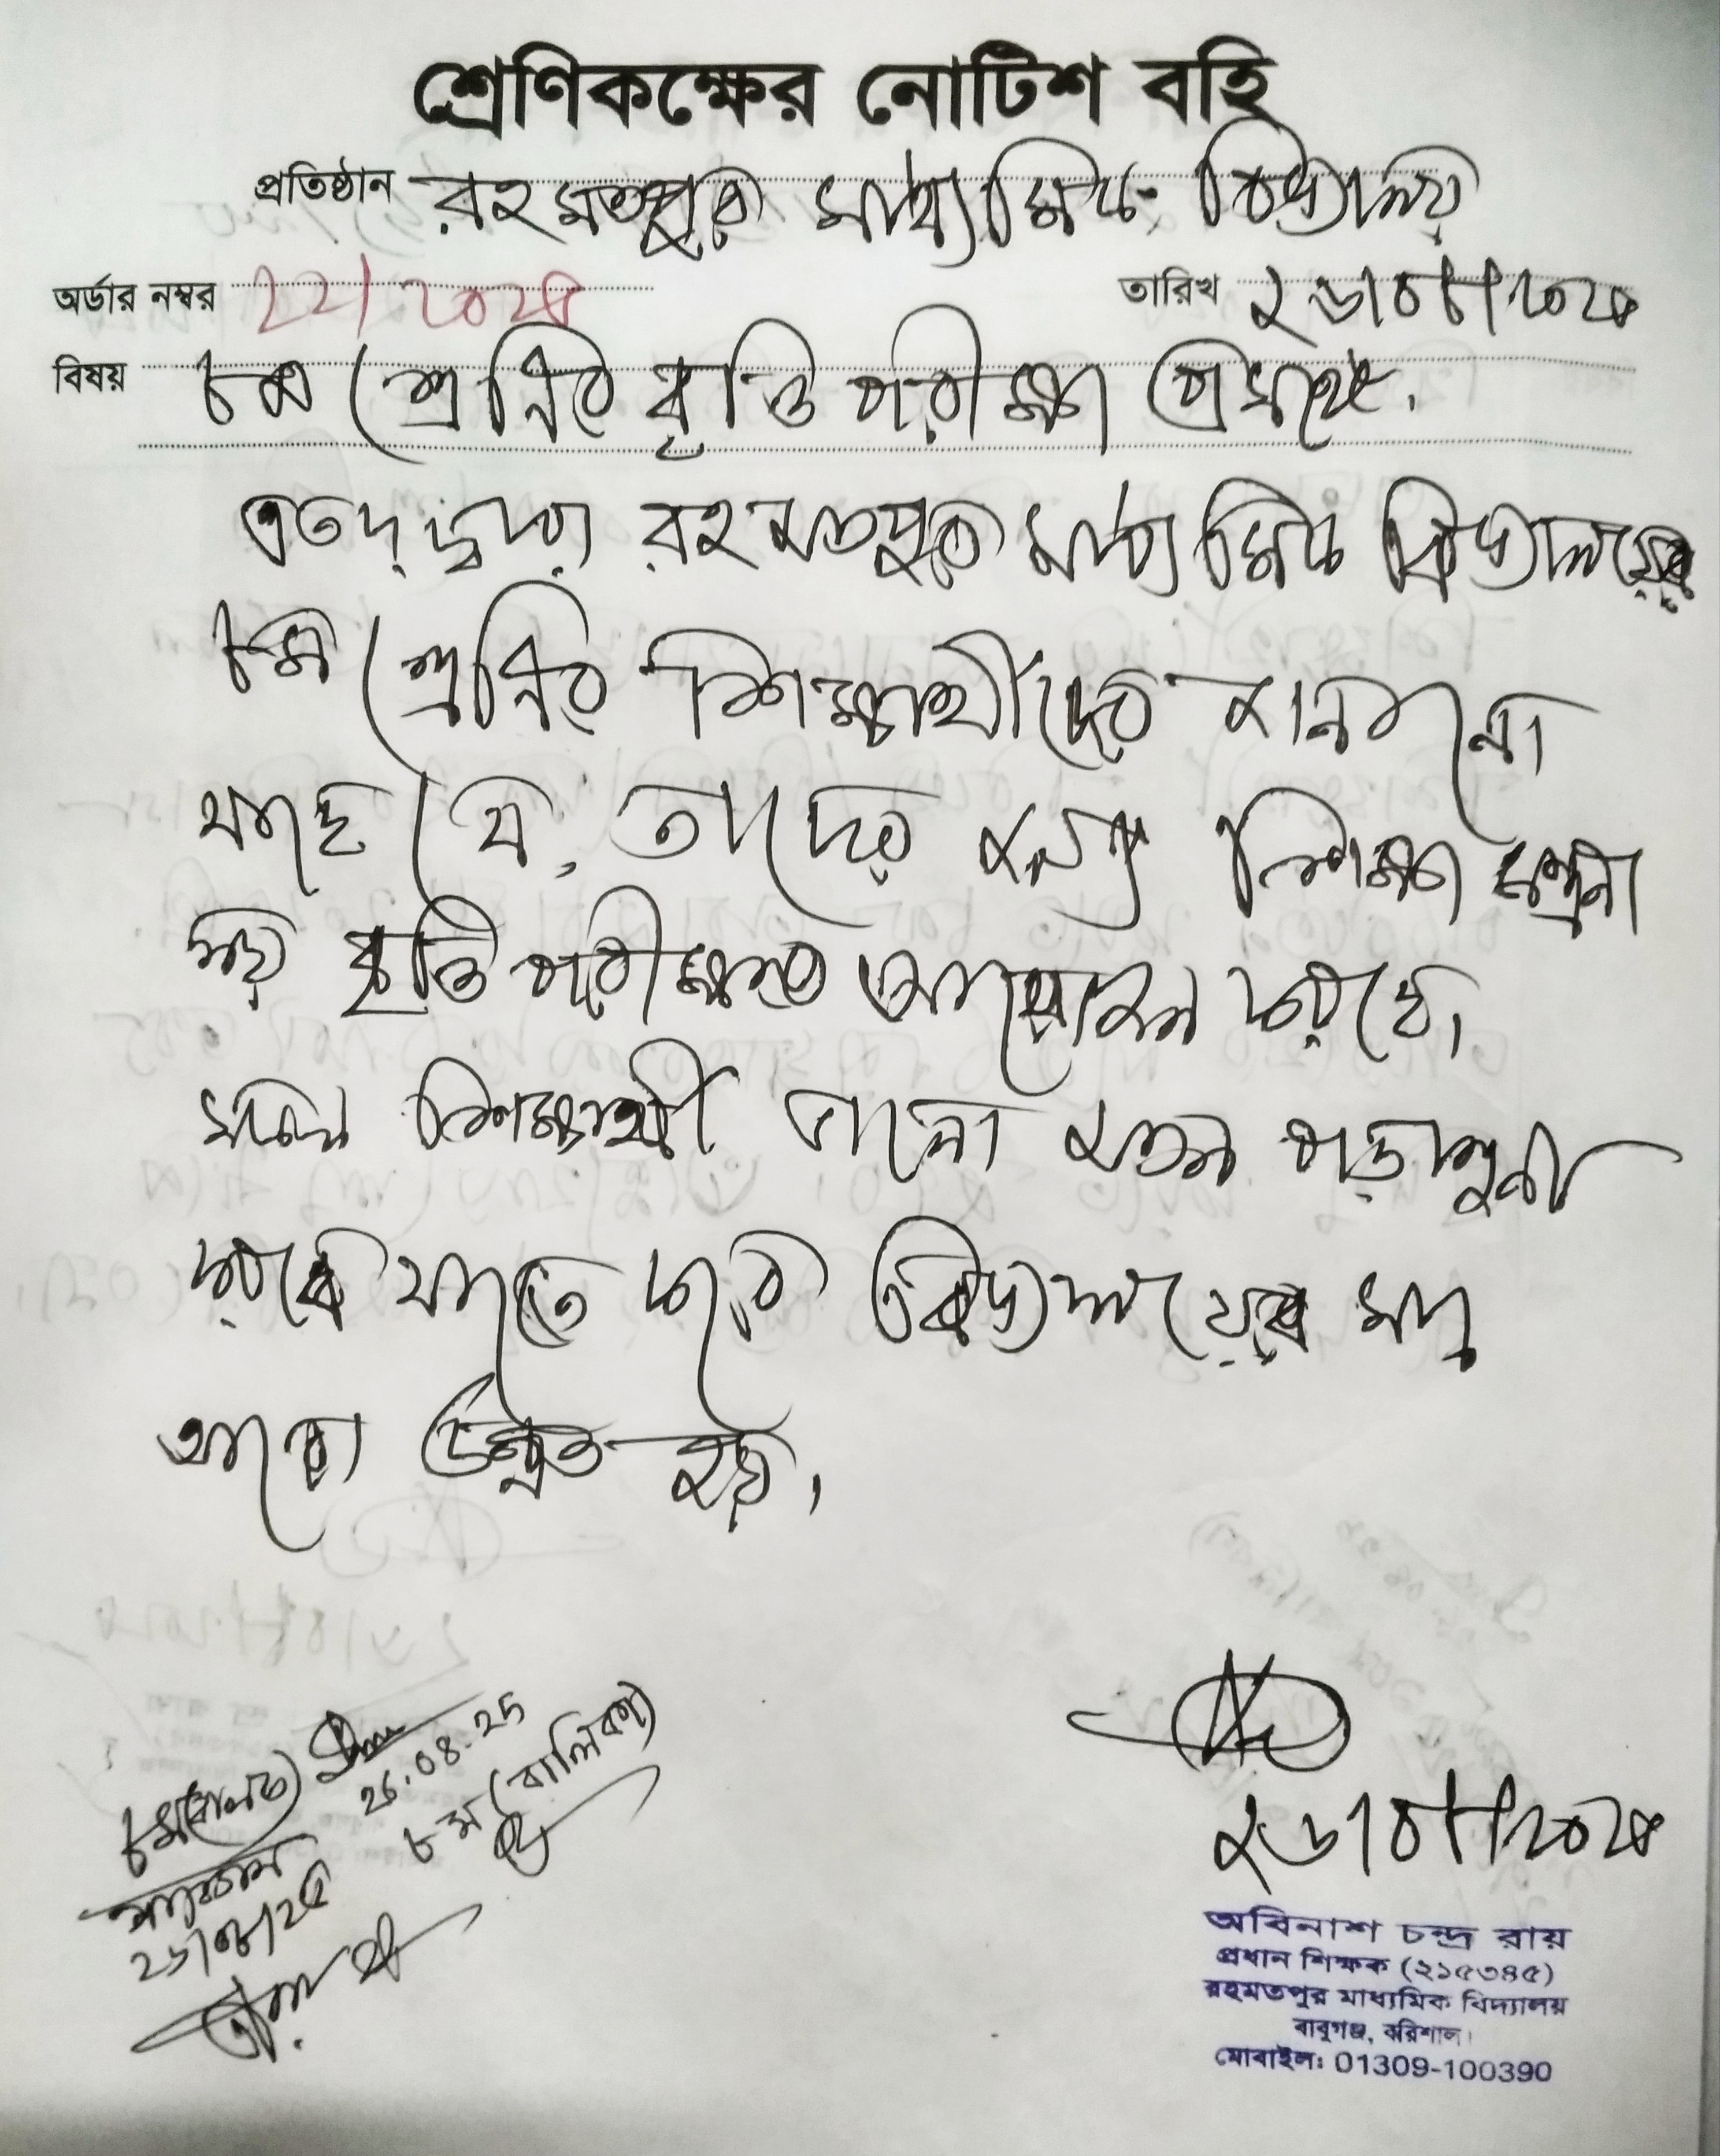 শ্রেণিকক্ষের নোটিশ বহি
প্রতিষ্ঠান রহমতপুর মাধ্যমিক বিদ্যালয়
অর্ডার নম্বর ২২/২০২৫ তারিখ ২৬/০৮/২০২৫
বিষয় ৮ম শ্রেণির বৃত্তি পরীক্ষা প্রসঙ্গে।
এতদ্দ্বারা রহমতপুর মাধ্যমিক বিদ্যালয়ের
৮ম শ্রেণির শিক্ষার্থীদের জানানো
যাচ্ছে যে, তাদের জন্য শিক্ষা মন্ত্রনা
লয় বৃত্তি পরীক্ষার আয়োজন করেছে।
সকল শিক্ষার্থী ভালো মতন পড়াশুনা
করবে যাতে করে বিদ্যালয়ের মান
আরো উন্নত হয়।
৮ম (বালক)
26.08.25
৮ম (বালিকা)
২৬/০৮/২৫
২৬/০৮/২০২৫
অবিনাশ চন্দ্র রায়
প্রধান শিক্ষক (২১৫৩৪৫)
রহমতপুর মাধ্যমিক বিদ্যালয়
বাবুগঞ্জ, বরিশাল।
মোবাইল: 01309-100390